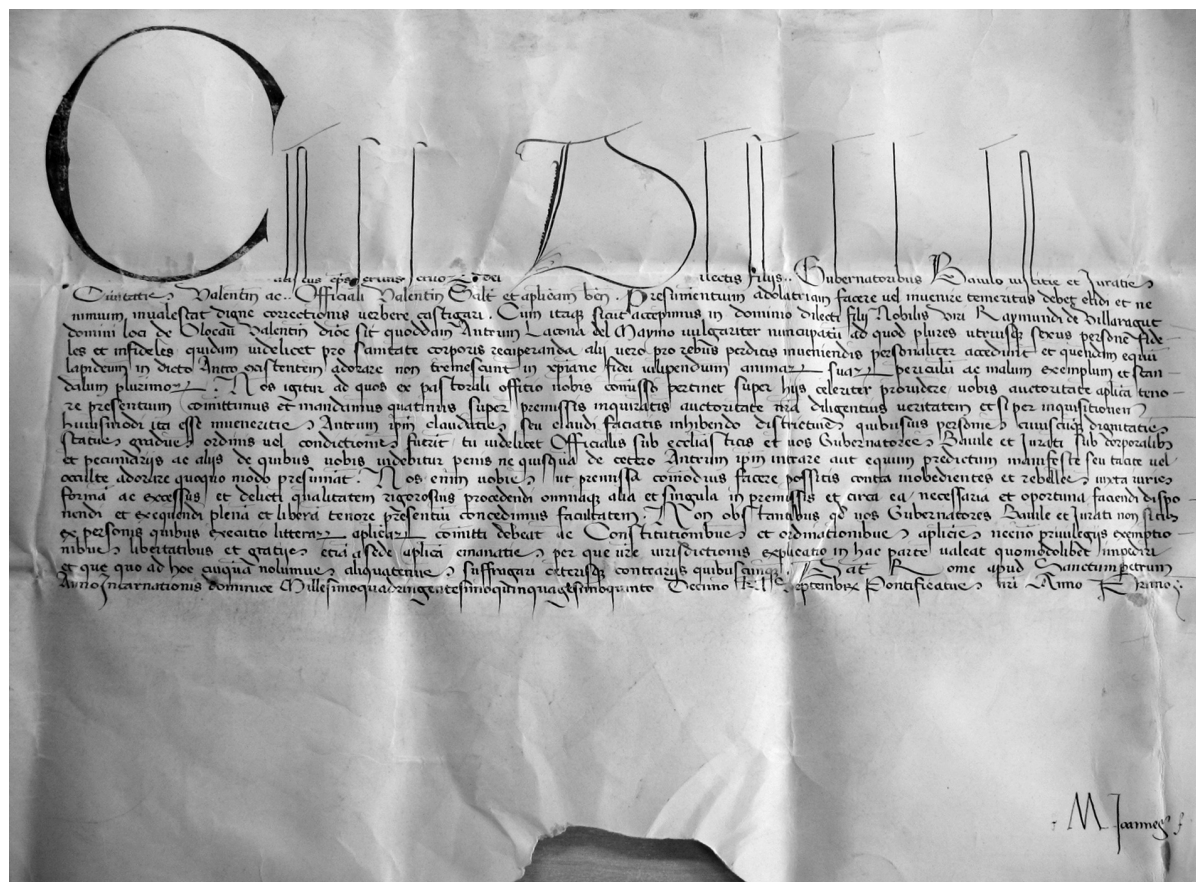 Calistus eps servus servor dei Dilectis filijs .. Gubernatoribus Baiulo militie et Juratis
Civitatis Valentin ac .. Officiali Valentin Salt et aplicam ben . Presumentium adolatriam facere vel invenire temeritas debet elidi et ne
nimium invalescat digne correctionis verbere castigari . Cum itaq sicut accepimus in dominio dilecti filij Nobilis viri Raymundi de Villaragut
domini loci de Olocau Valentin dioc sit quoddam Antrum Lacova del Mayno vulgariter nuncupatu ad quod plures utriusq sexus persone fide
les et infideles quidam videlicet pro sanitate corporis recuperanda alij vero pro rebus perditis inveniendis personaliter accedunt et quendam equu
lapideum in dicto Antro existentem adorare non tremescunt in xpiane fidei vilipendium animar suar periculu ac malum exemplum et scan
dalum plurimor . Nos igitur ad quos ex pastorali offitio nobis comisso pertinet super hijs celeriter providere vobis auctoritate aplica teno
re presentium comittimus et mandamus quatinus super premissis inquiratis auctoritate nra diligentius veritatem et si per inquisitionem
huiusmodi ita esse inveneritis Antrum ipm claudatis seu claudi faciatis inhibendo districtius quibusvis personis cuiuscuq dignitatis
status gradus ordinis vel condictionis fuerit tu videlicet Officialis sub eccliasticas et vos Gubernatores Baiule et Jurati sub corporalib
et pecuniarijs ac alijs de quibus vobis videbitur penis ne quisqua de cetero Antrum ipm intrare aut equum predictum manifeste seu tacite vel
occulte adorare quoquo modo presumat . Nos enim vobis ut premissa comodius facere possitis contra inobedientes et rebelles iuxta iuris
forma ac excessus et delicti qualitatem rigorosius procedendi omniaq alia et singula in premissis et circa ea necessaria et oportuna faciendi dispo
nendi et exequendi plena et libera tenore presentiu concedimus facultatem . Non obstantibus qd vos Gubernatores Baiule et Jurati non sitis
ex personis quibus executio litterar aplicar comitti debeat ac Constitutionibus et ordinationibus aplicis necno privilegijs exemptio
nibus libertatibus et gratijs etia a sede aplica emanatis per que vre iurisdictionis explicatio in hac parte valeat quomodolibet impediri
et que quo ad hoc cuiqua nolumus aliquatenus suffragari ceterisq contrarijs quibuscunq . Dat Rome apud Sanctumpetrum
Anno Incarnationis dominice Millesimoquadringentesimoquinquagesimoquinto Decimo kls Septembris Pontificatus nri Anno Primo
M Joannes